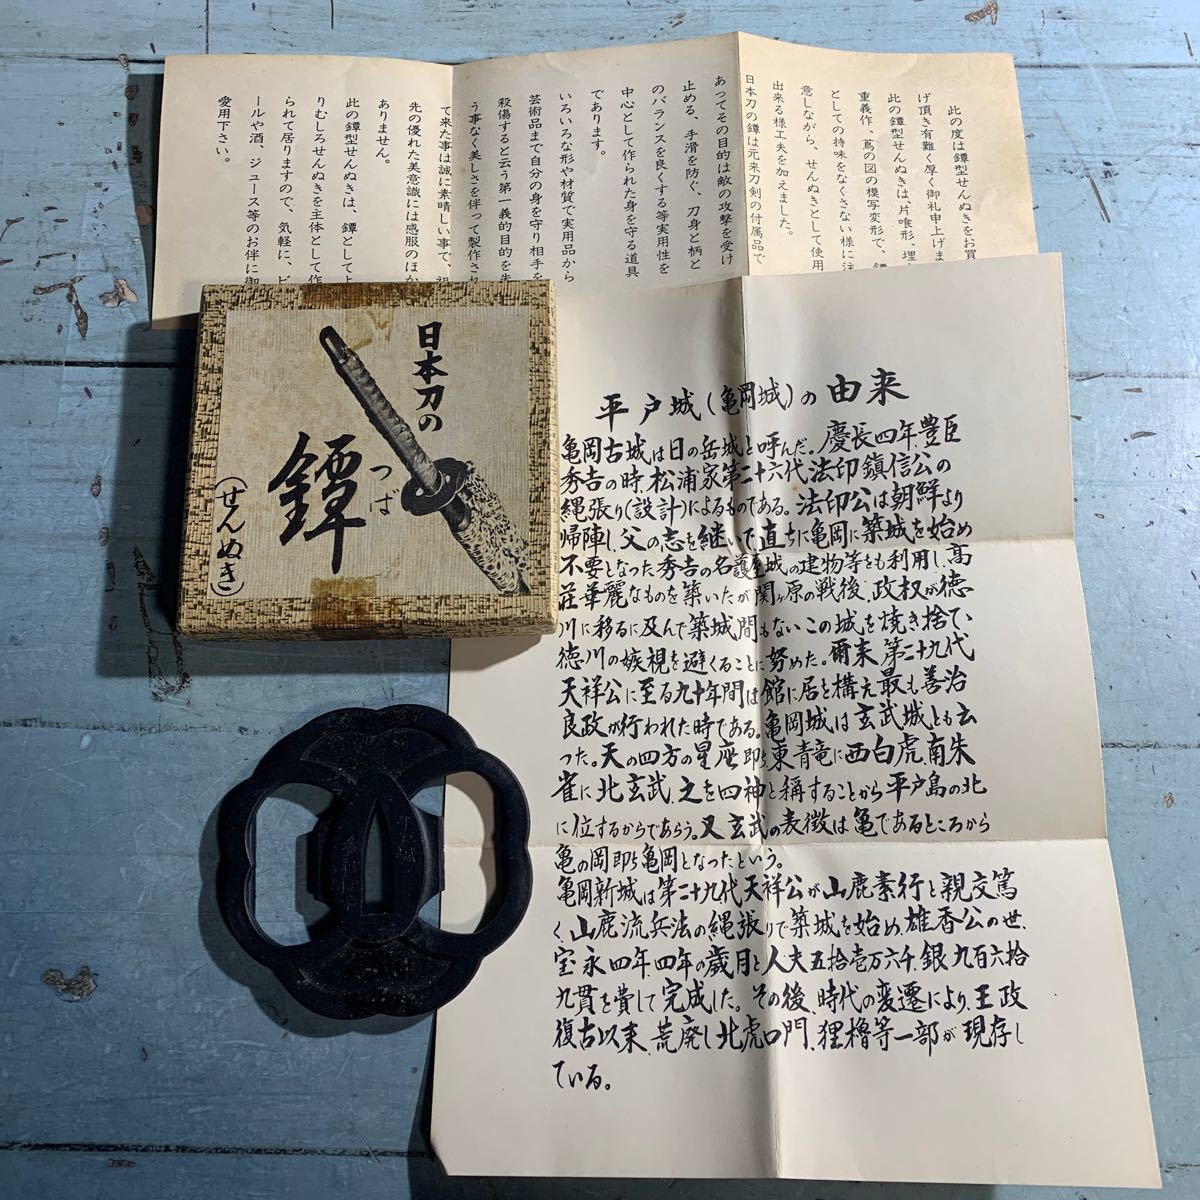 此の度は鐔型せんぬきをお買
げ頂き有難く厚く御礼申上げま
此の鐔型せんぬきは、片喰形、埋
重義作、蔦の図の模写変形で、鐔
としての持味をなくさない様に注
意しながら、せんぬきとして使用
出来る様工夫を加えました。
日本刀の鐔は元来刀剣の付属品で
あってその目的は敵の攻撃を受け
止める、手滑を防ぐ、刀身と柄と
のバランスを良くする等実用性を
中心として作られた身を守る道具
であります。
いろいろな形や材質で実用品から
芸術品まで自分の身を守り相手を
殺傷すると云う第一義的目的を失
う事なく美しさを伴って製作され
て来た事は誠に素晴しい事で、祖
先の優れた美意識には感服のほか
ありません。
此の鐔型せんぬきは、鐔として上
りむしろせんぬきを主体として作
られて居りますので、気軽に、ビ
ールや酒、ジュース等のお伴に御
愛用下さい。
日本刀の
鐔
つば
(せんぬき)
平戸城(亀岡城)の由来
亀岡古城は日の岳城と呼んだ。慶長四年、豊臣
秀吉の時、松浦家第二十六代法印鎮信公の
縄張り(設計)によるものである。法印公は朝鮮より
帰陣し、父の志を継いで直ちに亀岡に築城を始め
不要となった秀吉の名護屋城の建物等をも利用し、高
荘華麗なものを築いたが関ヶ原の戦後、政权が徳
川に移るに及んで築城間もないこの城を焼き捨て、
徳川の嫉視を避くることに努めた。爾来、第二十九代
天祥公に至る九十年間は館に居を構え最も善治
良政が行われた時である。亀岡城は玄武城とも云
った。天の四方の星座即ち東青竜に西白虎、南朱
雀に北玄武、之を四神と称することから平戸島の北
に位するからであらう。又玄武の表徴は亀であるところから
亀の岡即ち亀岡となったという。
亀岡新城は第二十九代天祥公が山鹿素行と親交篤
く、山鹿流兵法の縄張りで築城を始め、雄香公の世、
宝永四年、四年の歳月と人夫五拾壱万六千、銀九百六拾
九貫を費して完成した。その後、時代の変遷により、王政
復古以来、荒廃し北虎口門、狸櫓等一部が現存し
ている。